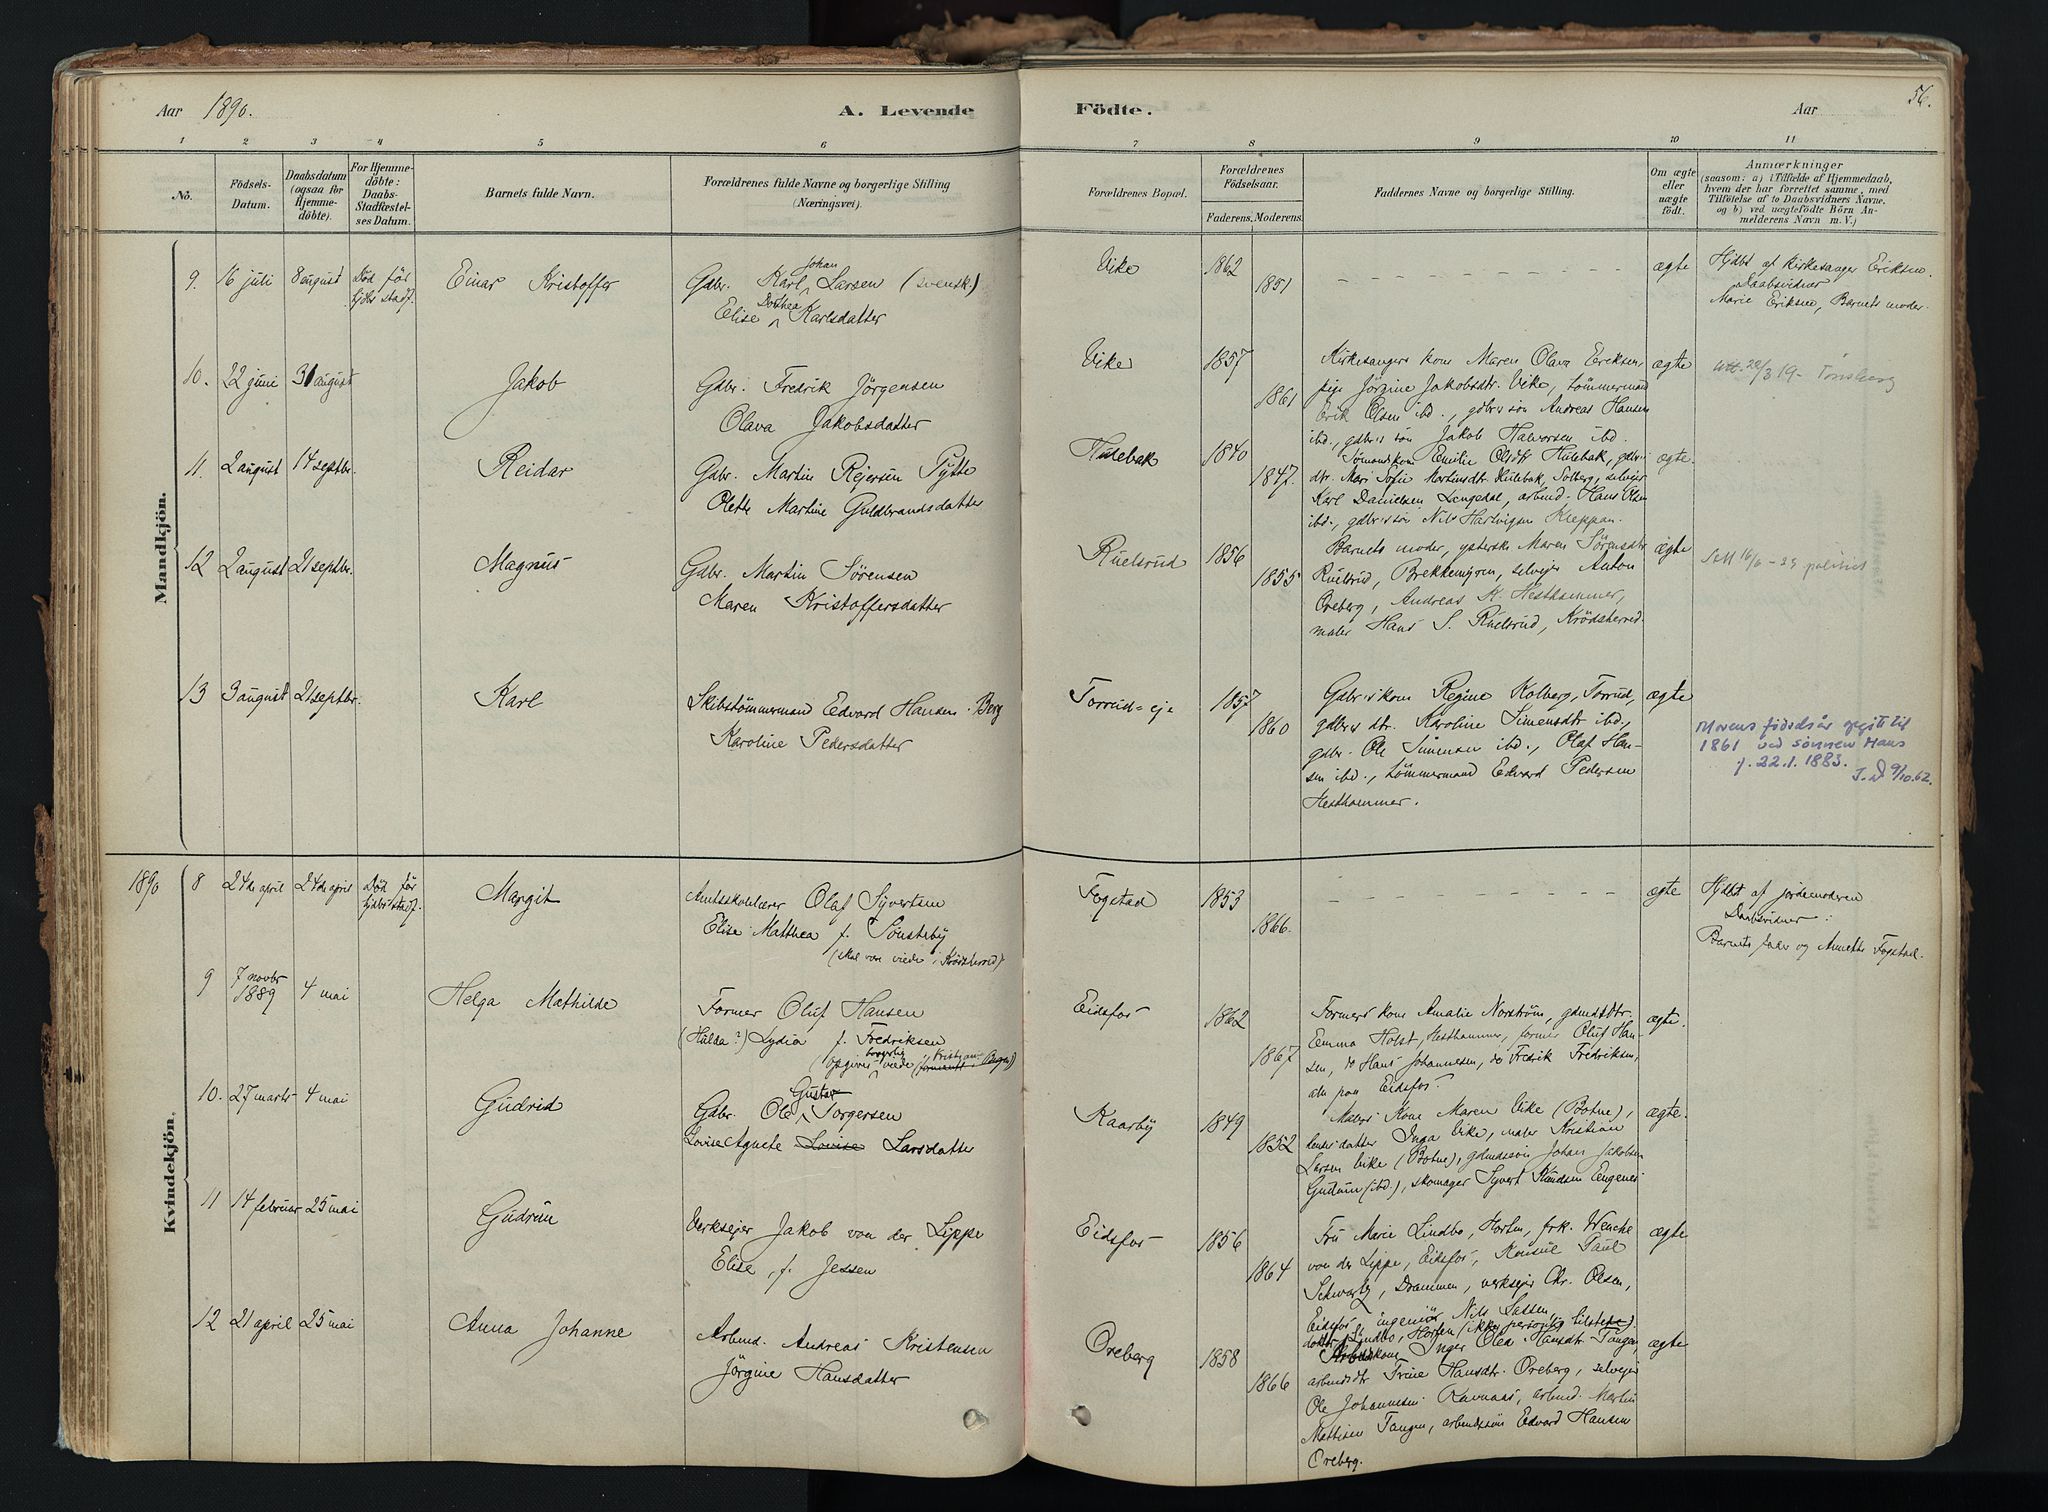 Aar 1890.
A. Levende
Födte.
Aar
56.
1 2 3 4 5 6 7 8 9 10 11
No.
Födsels-
Datum.
Daabsdatum
(ogsaa for
Hjemme-
döbte).
For Hjemme-
döbte:
Daabs-
Stadfæstel-
ses Datum.
Barnets fulde Navn.
Forældrenes fulde Navne og borgerlige Stilling
(Næringsvei).
Forældrenes Bopæl.
Forældrenes
Födselsaar.
Faderens. Moderens.
Faddernes Navne og borgerlige Stilling.
Om ægte
eller
uægte
födt.
Anmærkninger
(saasom: a) i Tilfælde af Hjemmedaab,
hvem der har forrettet samme, med
Tilföielse af to Daabsvidners Navne,
og b) ved uægtefödte Börn An-
melderens Navn m. V.)
Mandkjön.
9. 16 juli 8 august Död för
hjdbs stadf.
Einar Kristoffer
Gdbr. Karl Johan Larsen (svensk)
Elise Dorthea Karlsdatter
Vike 1862
1851
ægte
Hjdbt af kirkesanger Eriksen.
Daabsvidner
Marie Eriksen, Barnets moder.
10. 22 juni 31 august
Jakob
Gdbr. Fredrik Jörgensen
Olava Jakobsdatter
Vike 1857
1861
Kirkesangers kone Maren Olava Eriksen,
pige Jörgine Jakobsdtr. Vike, tömmermand
Erik Olsen ibd., gdbrs sön Andreas Hansen
ibd., gdbrs sön Jakob Halvorsen ibd.
ægte
Att. 22/3 19 - Tønsberg
11. 2 august 14 septbr.
Reidar
Gdbr. Martin Rejersen Pytte
Olette Martine Guldbrandsdatter
Hulebak 1840
1847.
Sömandskone Emilie Olsdtr Hulebak, gdbrs
dtr. Mari Sofie Martinsdtr. Hulebak, Solberg, selvejer
Karl Danielsen Lengedal, arbmd. Hans Olsen
ibd., gdbrs sön Nils Hartvigsen Kleppan.
ægte.
12 2 august 21 septbr.
Magnus
Gdbr. Martin Sörensen
Maren Kristoffersdatter
Ruelsrud 1856
1855
Barnets moder, ysterske Maren Sörensdtr
Ruelsrud, Brekkemyren, selvejer Anton
Oreberg, Andreas K. Hesthammer,
maler Hans S. Ruelsrud, Krödsherred.
ægte
Att 16/6 - 29 politiet
13 3 august 21 septbr.
Karl
Skibstömmermand Edvard Hansen Berg
Karoline Pedersdatter
Torrud-eje 1857
1860
Gdbrs kone Regine Kolberg, Torrud,
gdbrs dtr. Karoline Simensdtr ibd.,
gdbr. Ole Simensen ibd., Olaf Han-
sen ibd., tömmermand Edvard Pedersen
Hesthammer.
ægte
Morens fødselsår oppgitt til
1861 ved sønnen Hans
f. 22.1.1883.
9/10.62.
Kvindekjön.
1890 8 24de april 24de april Död för
hjdbs stadf.
Margit
Amtsskolelærer Olaf Syvertsen
Elise Matthea f. Sönsteby
(skal være viede i Krödsherred)
Fogstad 1853
1866.
ægte
Hjdbt af jordemoderen
Daabsvidner:
Barnets fader og Annette Fogstad.
9 7 novbr
1889 4 mai
Helga Mathilde
Former Oluf Hansen
(Hulda?) Lydia f. Fredriksen
(opgives borgerlig viede
Eidsfos 1862
1867
Formers kone Amalie Norström, gdmdsdtr.
Emma Holst, Hesthammer, former Oluf Han-
sen, do Hans Johannesen, do Fredrik Fredriksen,
alle paa Eidsfos.
ægte.
10. 27 marts 4 mai
Gudrid
Gdbr. Ole Gustav Torgersen
Lovise Agnete Lovise Larsdatter
Kaarby 1849
1852
Malers kone Maren Vike (Botne),
datter Inga Vike, maler Kristian
Larsen Vike (Botne), gdmdssön Johan Jakobsen
Gutum (ibd.), skomager Syvert Knudsen Eugenes
ægte.
11 14 februar 25 mai
Gudrun
Verksejer Jakob von der Lippe
Elise, f. Jessen
Eidsfos 1856
1864
Fru Marie Lindbo, Horten, frk. Wenche
von der Lippe, Eidsfos, Konsul Paul
Schwartz, Drammen, verksejer Chr. Olsen,
Eidsfos, ingeniör Nils Sassen,
doktor Lindbo, Horten (ikke personlig tilstede).
ægte
12 21 april 25 mai
Anna Johanne
Arbmd. Andreas Kristensen
Jörgine Hansdatter
Oreberg 1858
1866
Arbmdskone Inger Olea Hansdtr Tangen,
arbmdsdtr Trine Hansdtr. Oreberg, selvejer
Ole Johannesen Ravnaas, arbmd. Martin
Mathisen Tangen, arbmdssön Edvard Hansen
Oreberg.
ægte